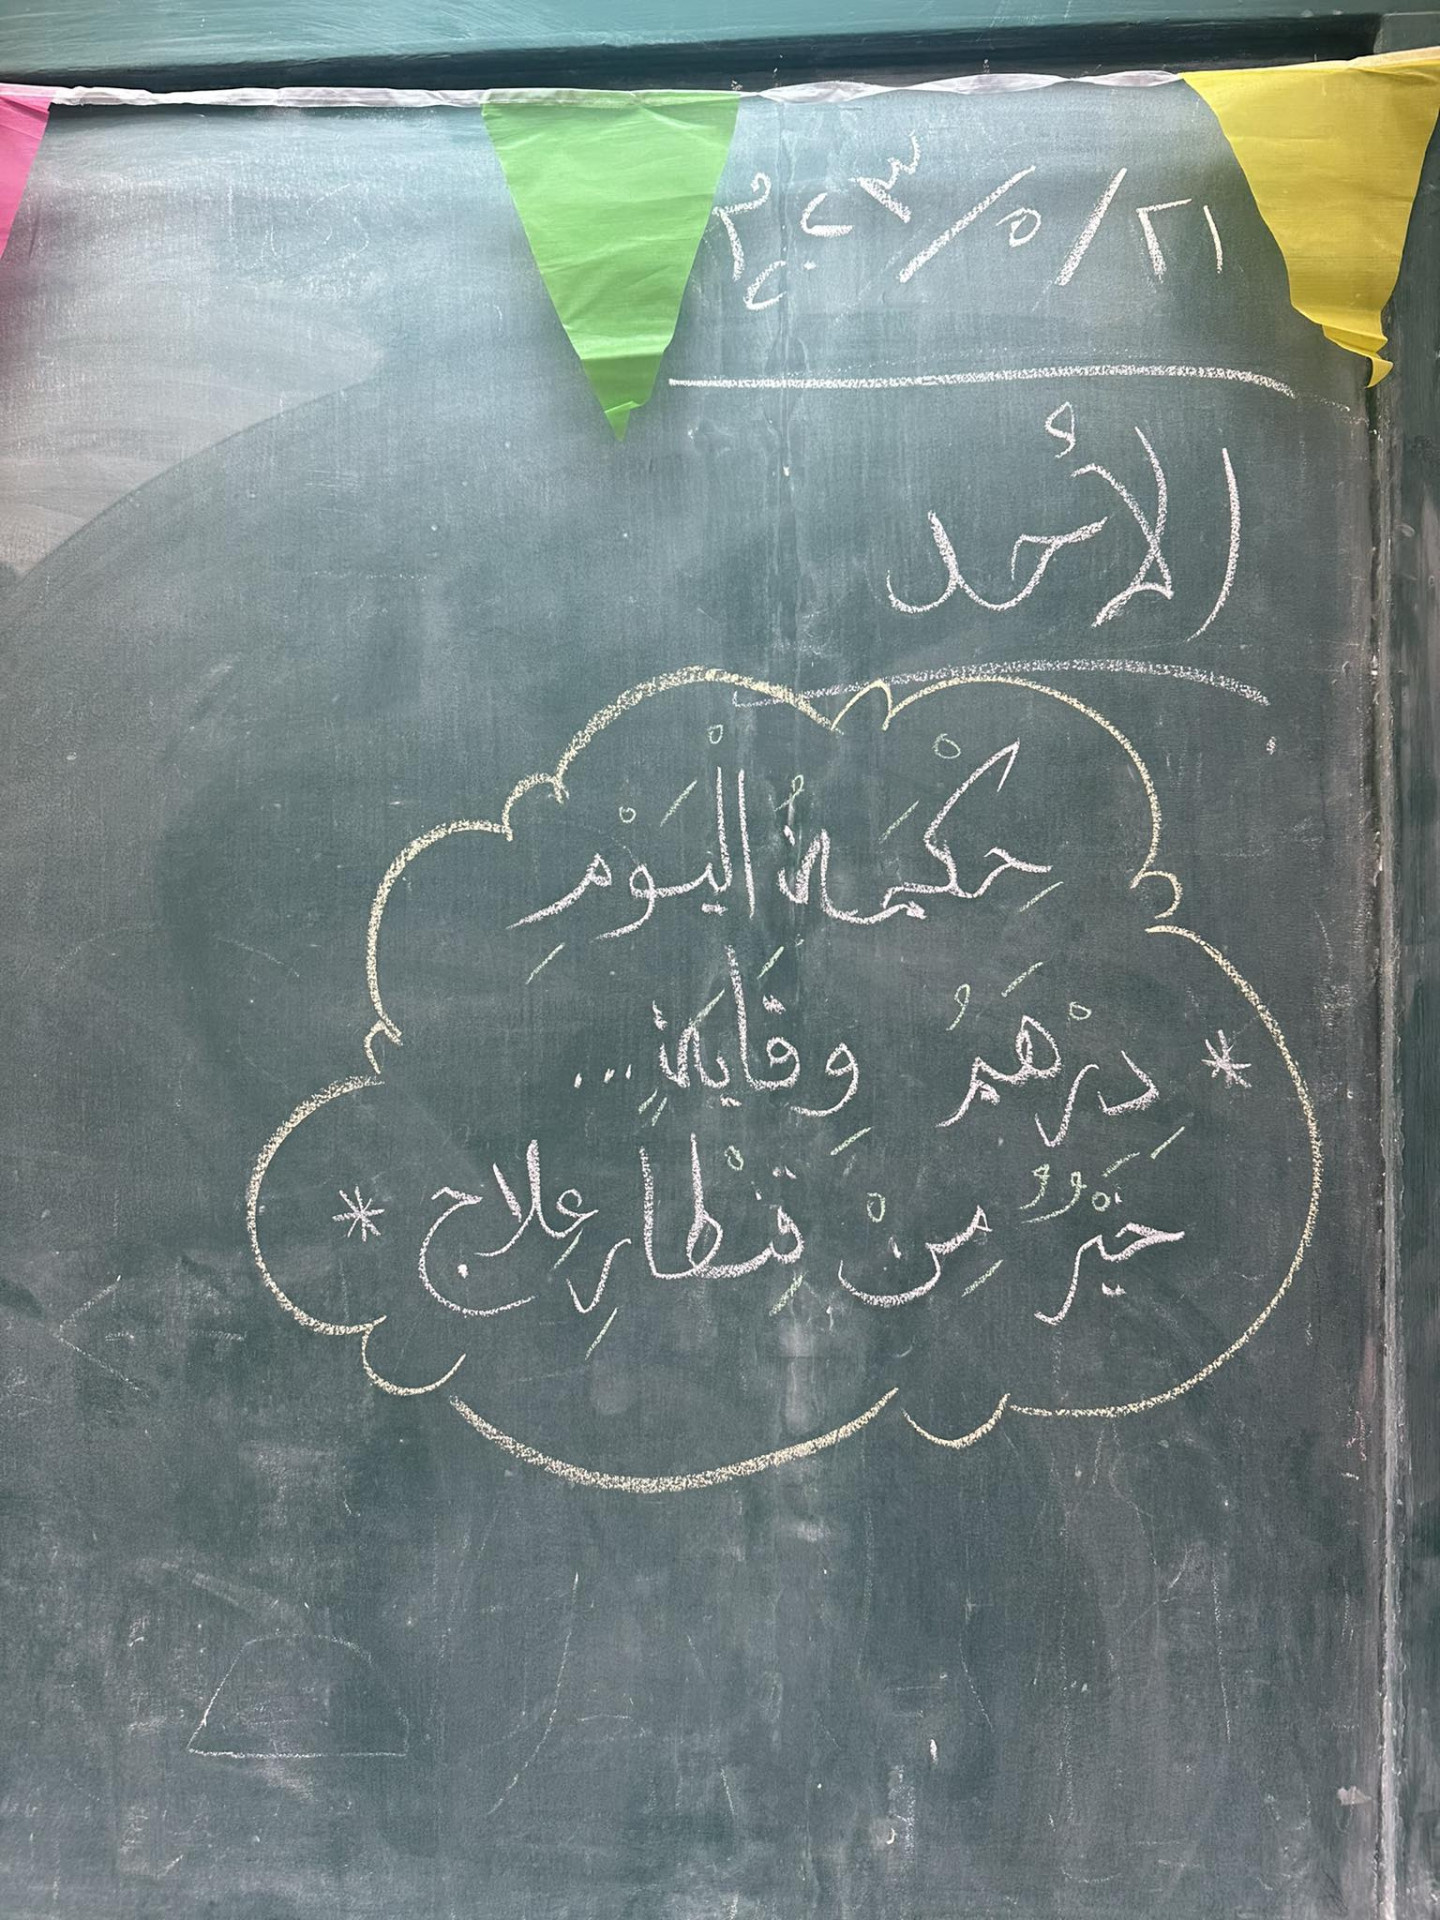 ٢١/٥/٢٠٢٣م
الأحد
حِكْمَةُ الْيَوْمِ
* دِرْهَمُ وِقَايَةٍ...
خَيْرٌ مِنْ قِنْطارِ عِلاج *